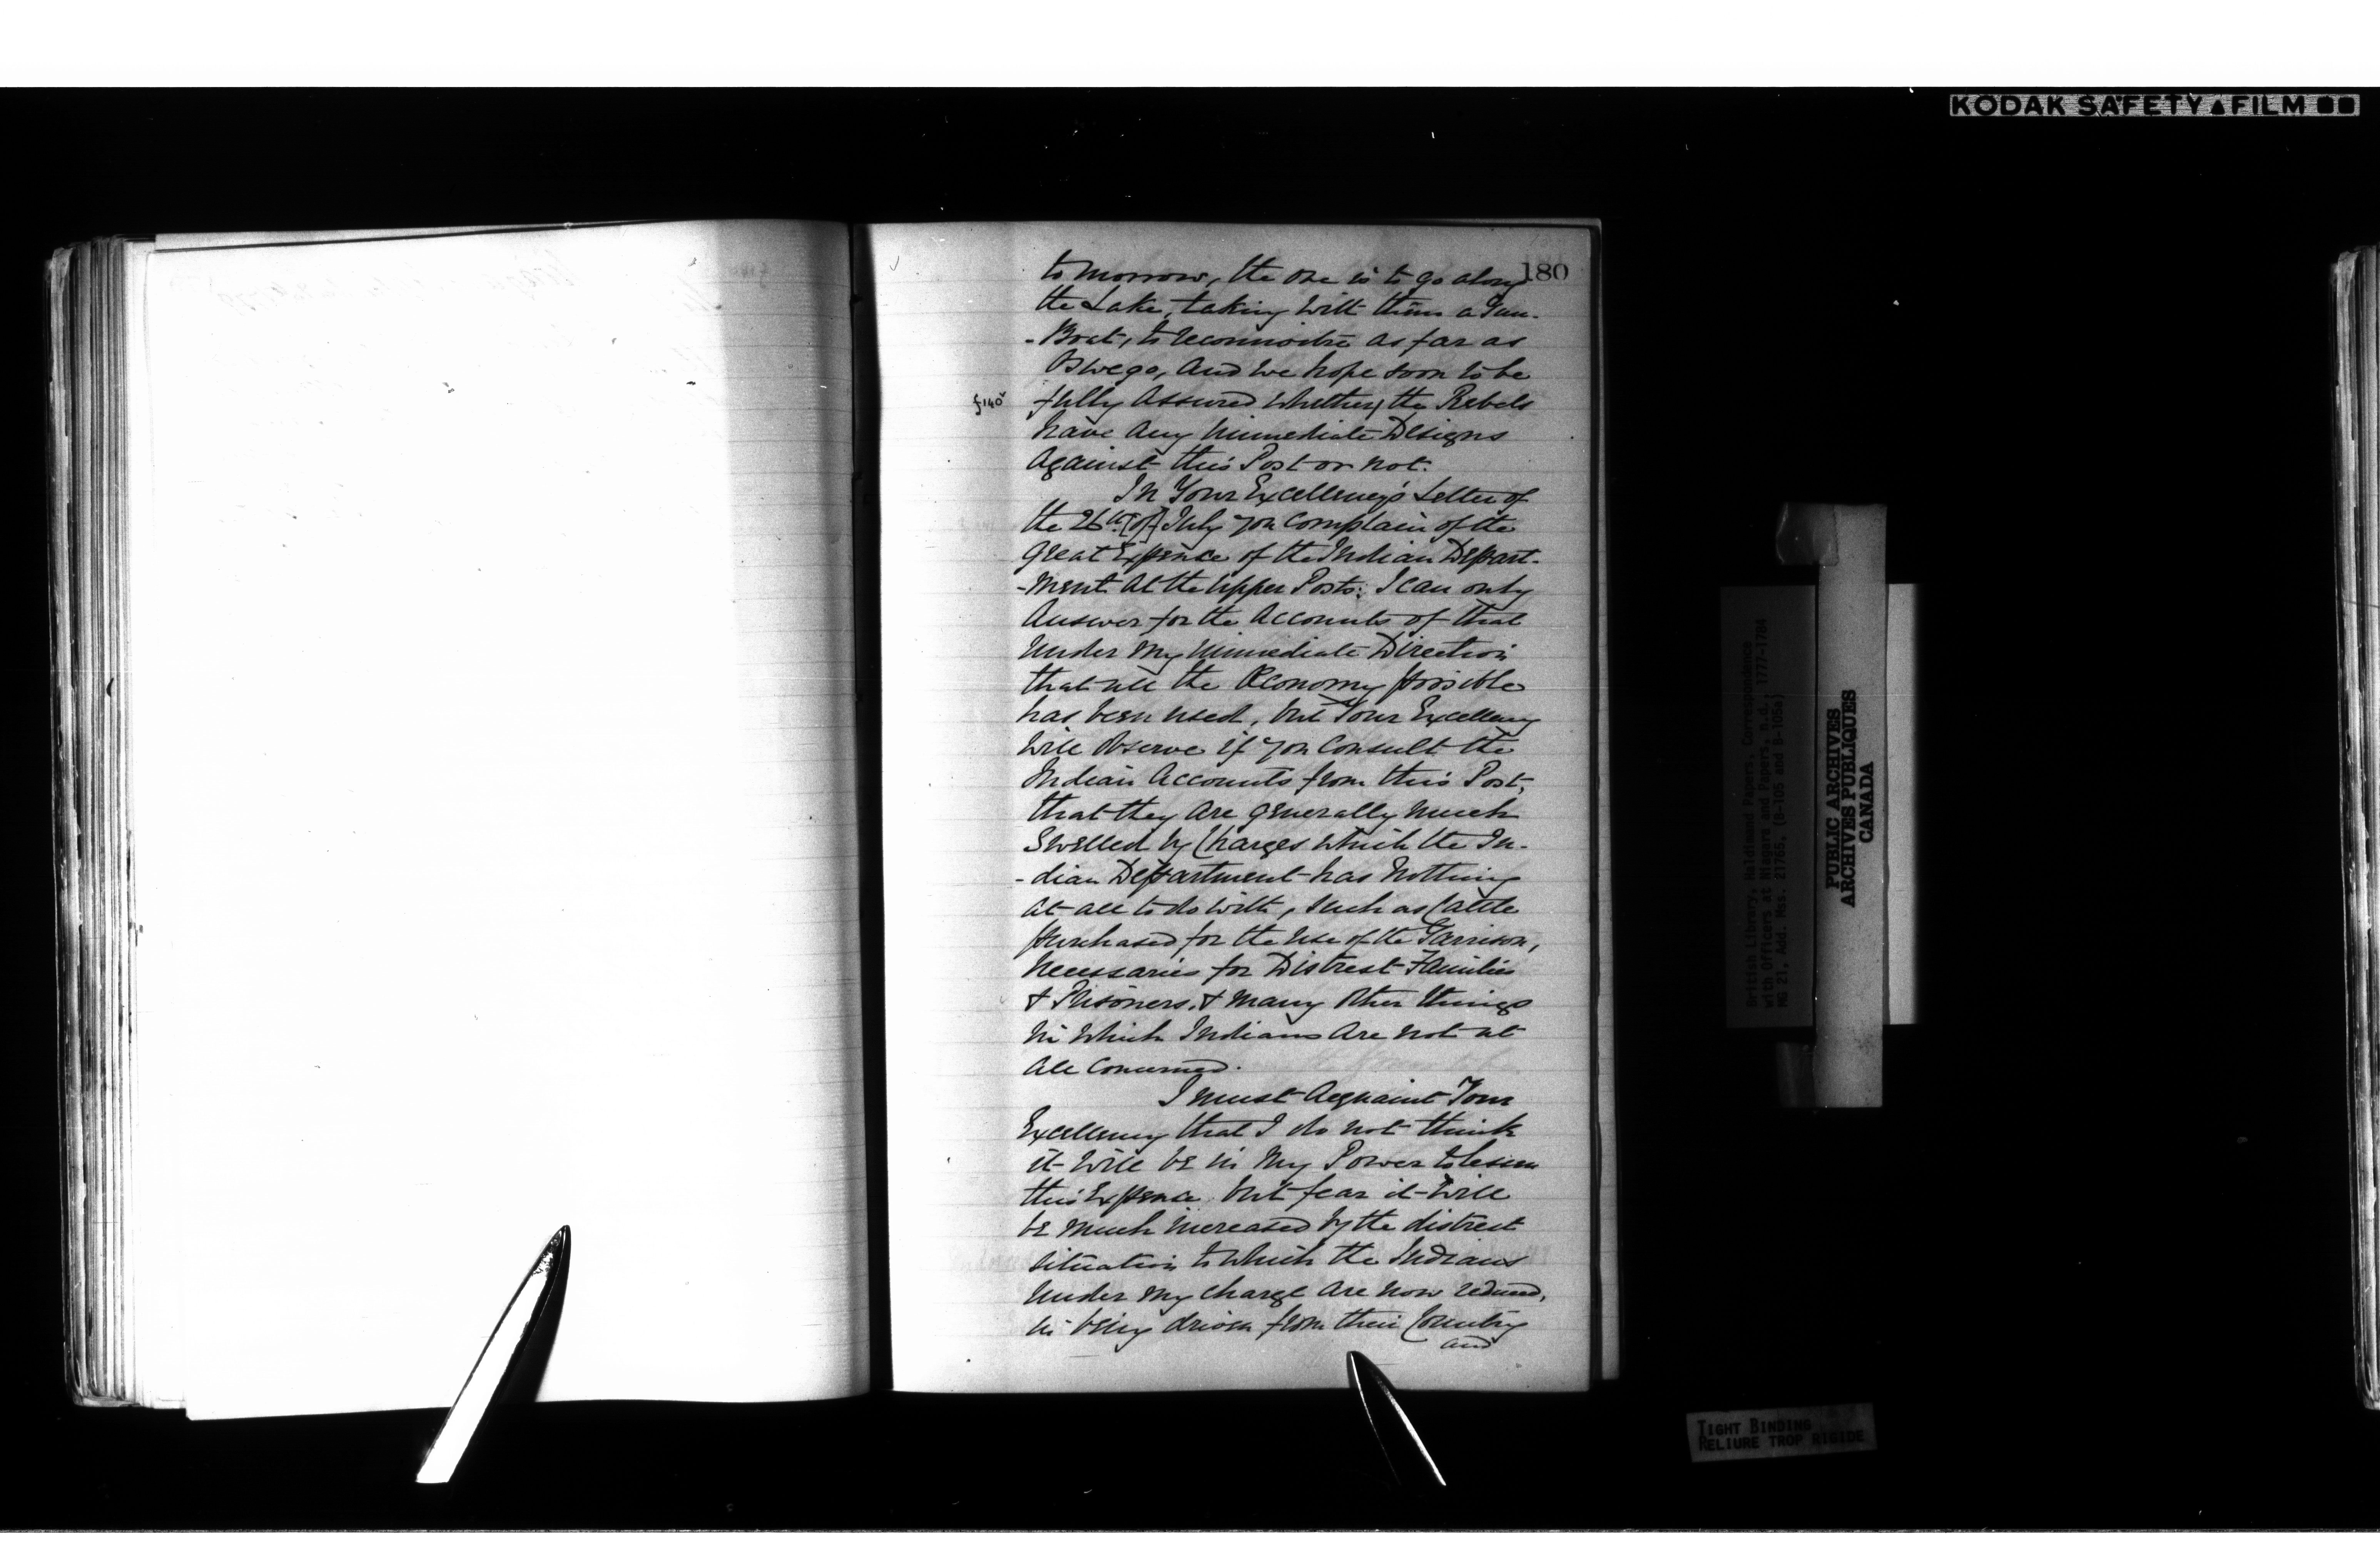 KODAK SAFETY FILM
180
to Morrow, the one is to go along
the Lake, taking with them a Gun-
-Boat, to reconnoitre as far as
Oswego, and we hope soon to be
f 140
fully Assured whether the Rebels
have any immediate Designs
Against this Post or not.
In Your Excellency's Letter of
the 26th [of] July you Complain of the
great Expence of the Indian Depart-
-ment at the Upper Posts; I can only
Answer for the Accounts of that
Under my immediate Direction
that all the Œconomy possible
has been used, but Your Excellency
will observe if you Consult the
Indian Accounts from this Post,
that they are generally much
Swelled by Charges which the In-
-dian Department has Nothing
at all to do with, such as Cattle
purchased for the Use of the Garrison,
Necessaries for Distrest Families
& Prisoners, & many other things
in which Indians are not at
all Concerned.
I must Acquaint Your
Excellency that I do not think
it will be in my Power to lessen
this Expence but fear it will
be much increased by the distrest
situation to which the Indians
Under my charge are now reduced,
in being driven from their Country
and
British Library, Haldimand Papers, Correspondence
with Officers at Niagara and Papers, n.d., 1777-1784
MG 21, Add. Mss. 21765, (B-105 and B-105a)
PUBLIC ARCHIVES
ARCHIVES PUBLIQUES
CANADA
TIGHT BINDING
RELIURE TROP RIGIDE